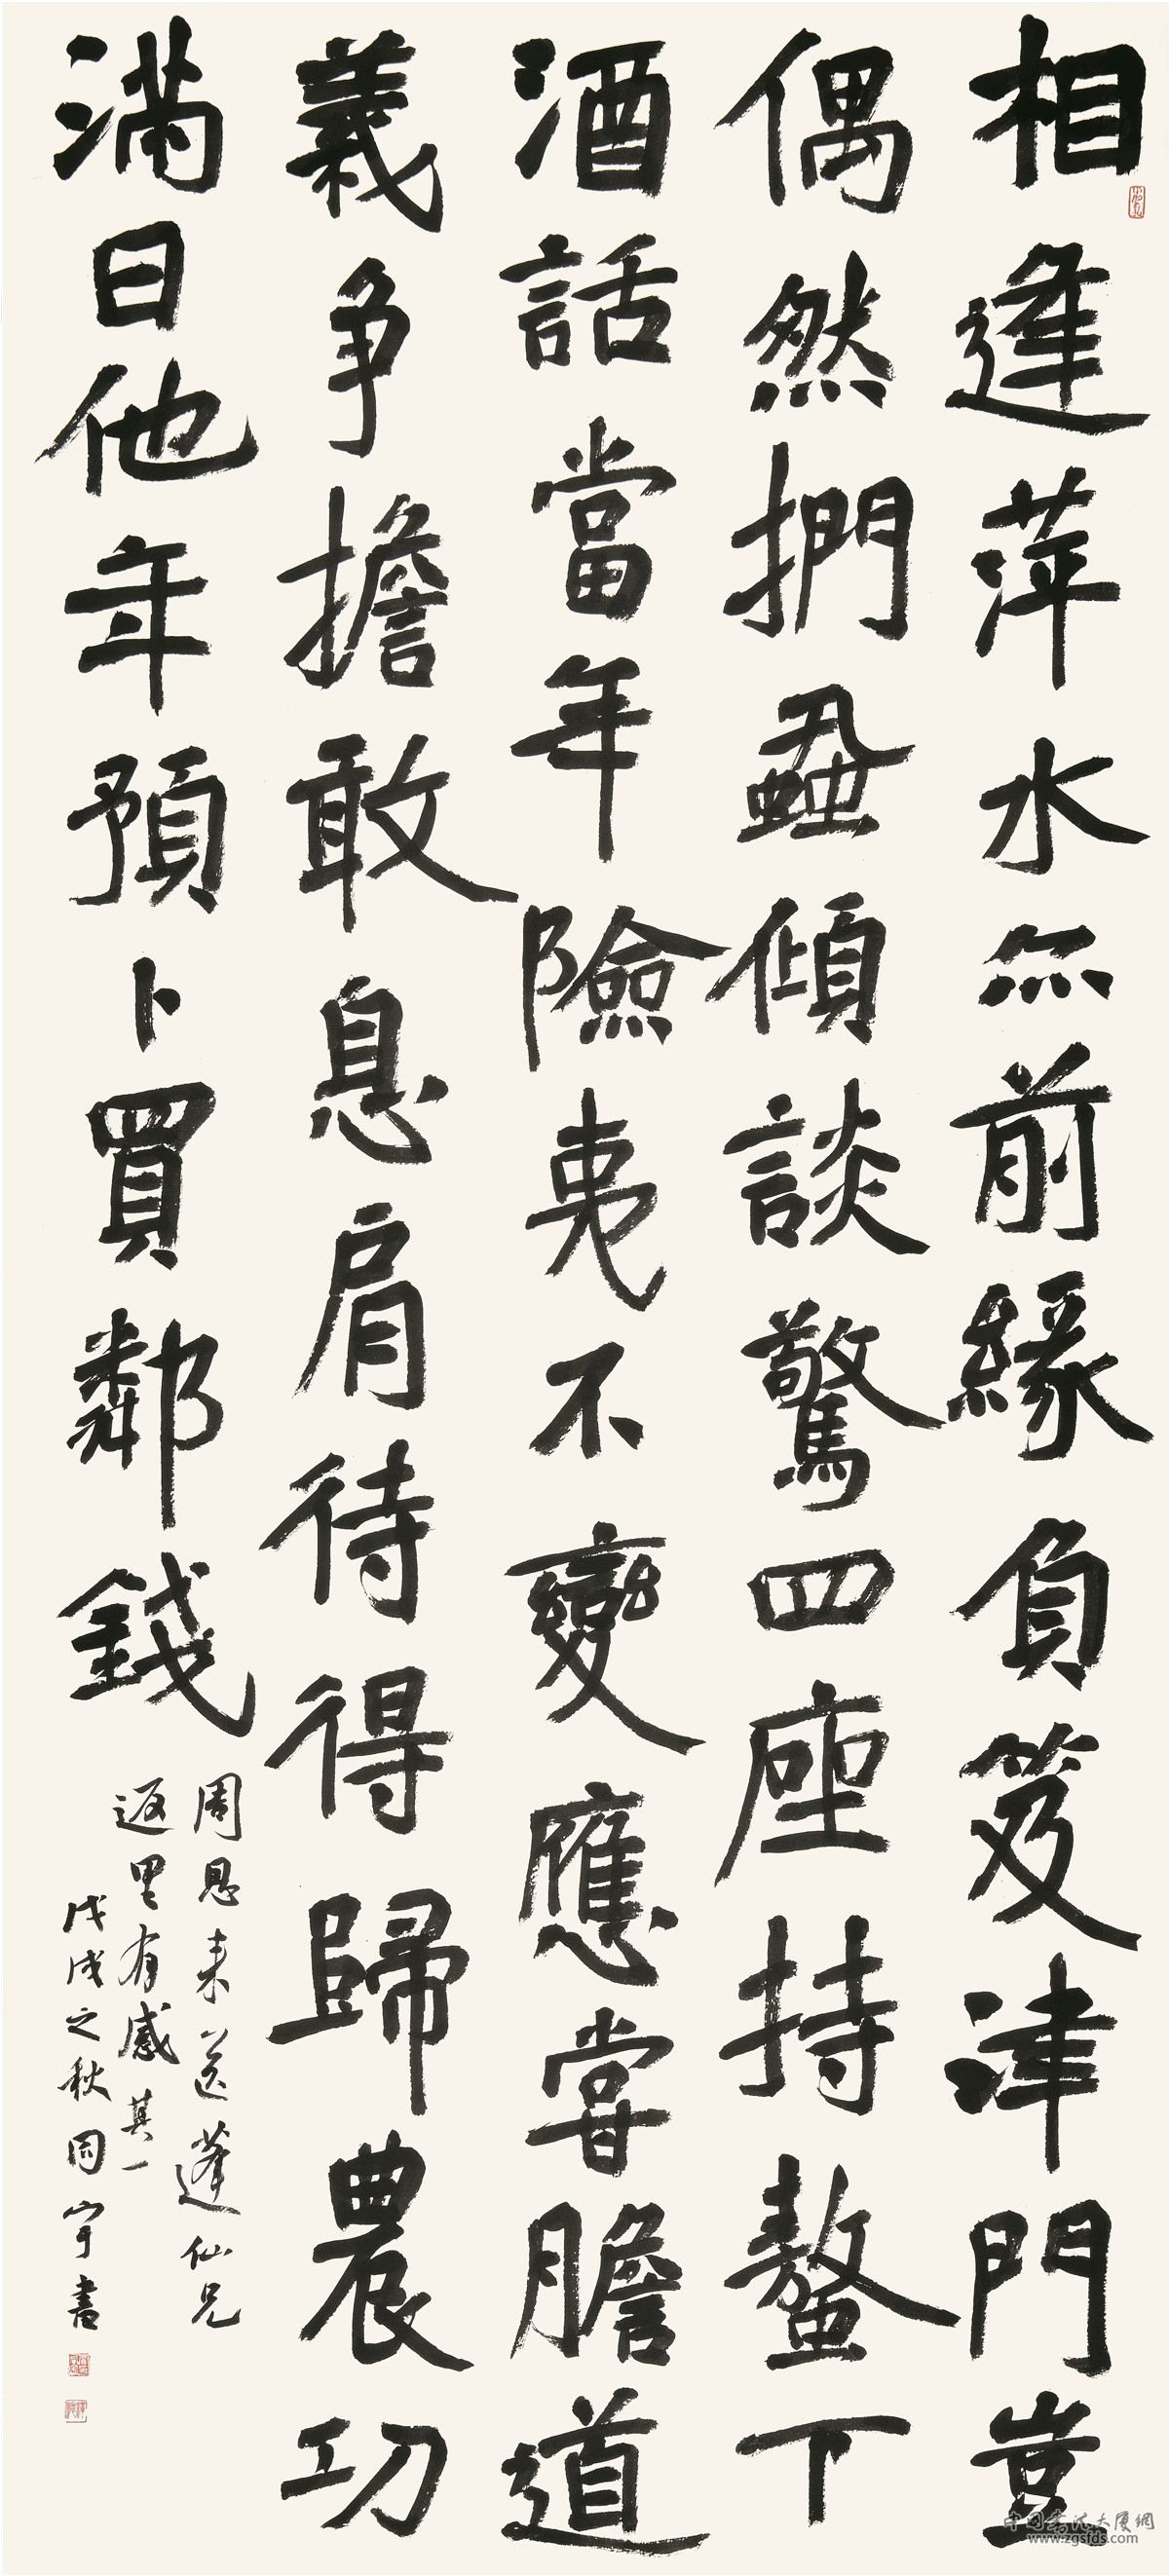 相逢萍水亦前緣負笈津門豈
偶然捫蝨傾談驚四座持螯下
酒話當年險夷不變應嘗膽道
義争擔敢息肩待得歸農功
滿日他年預卜買鄰錢
周恩来送蓬仙兄
返里有感其一
戊戌之秋同宇書
中国书法大厦網
www.zgsfds.com